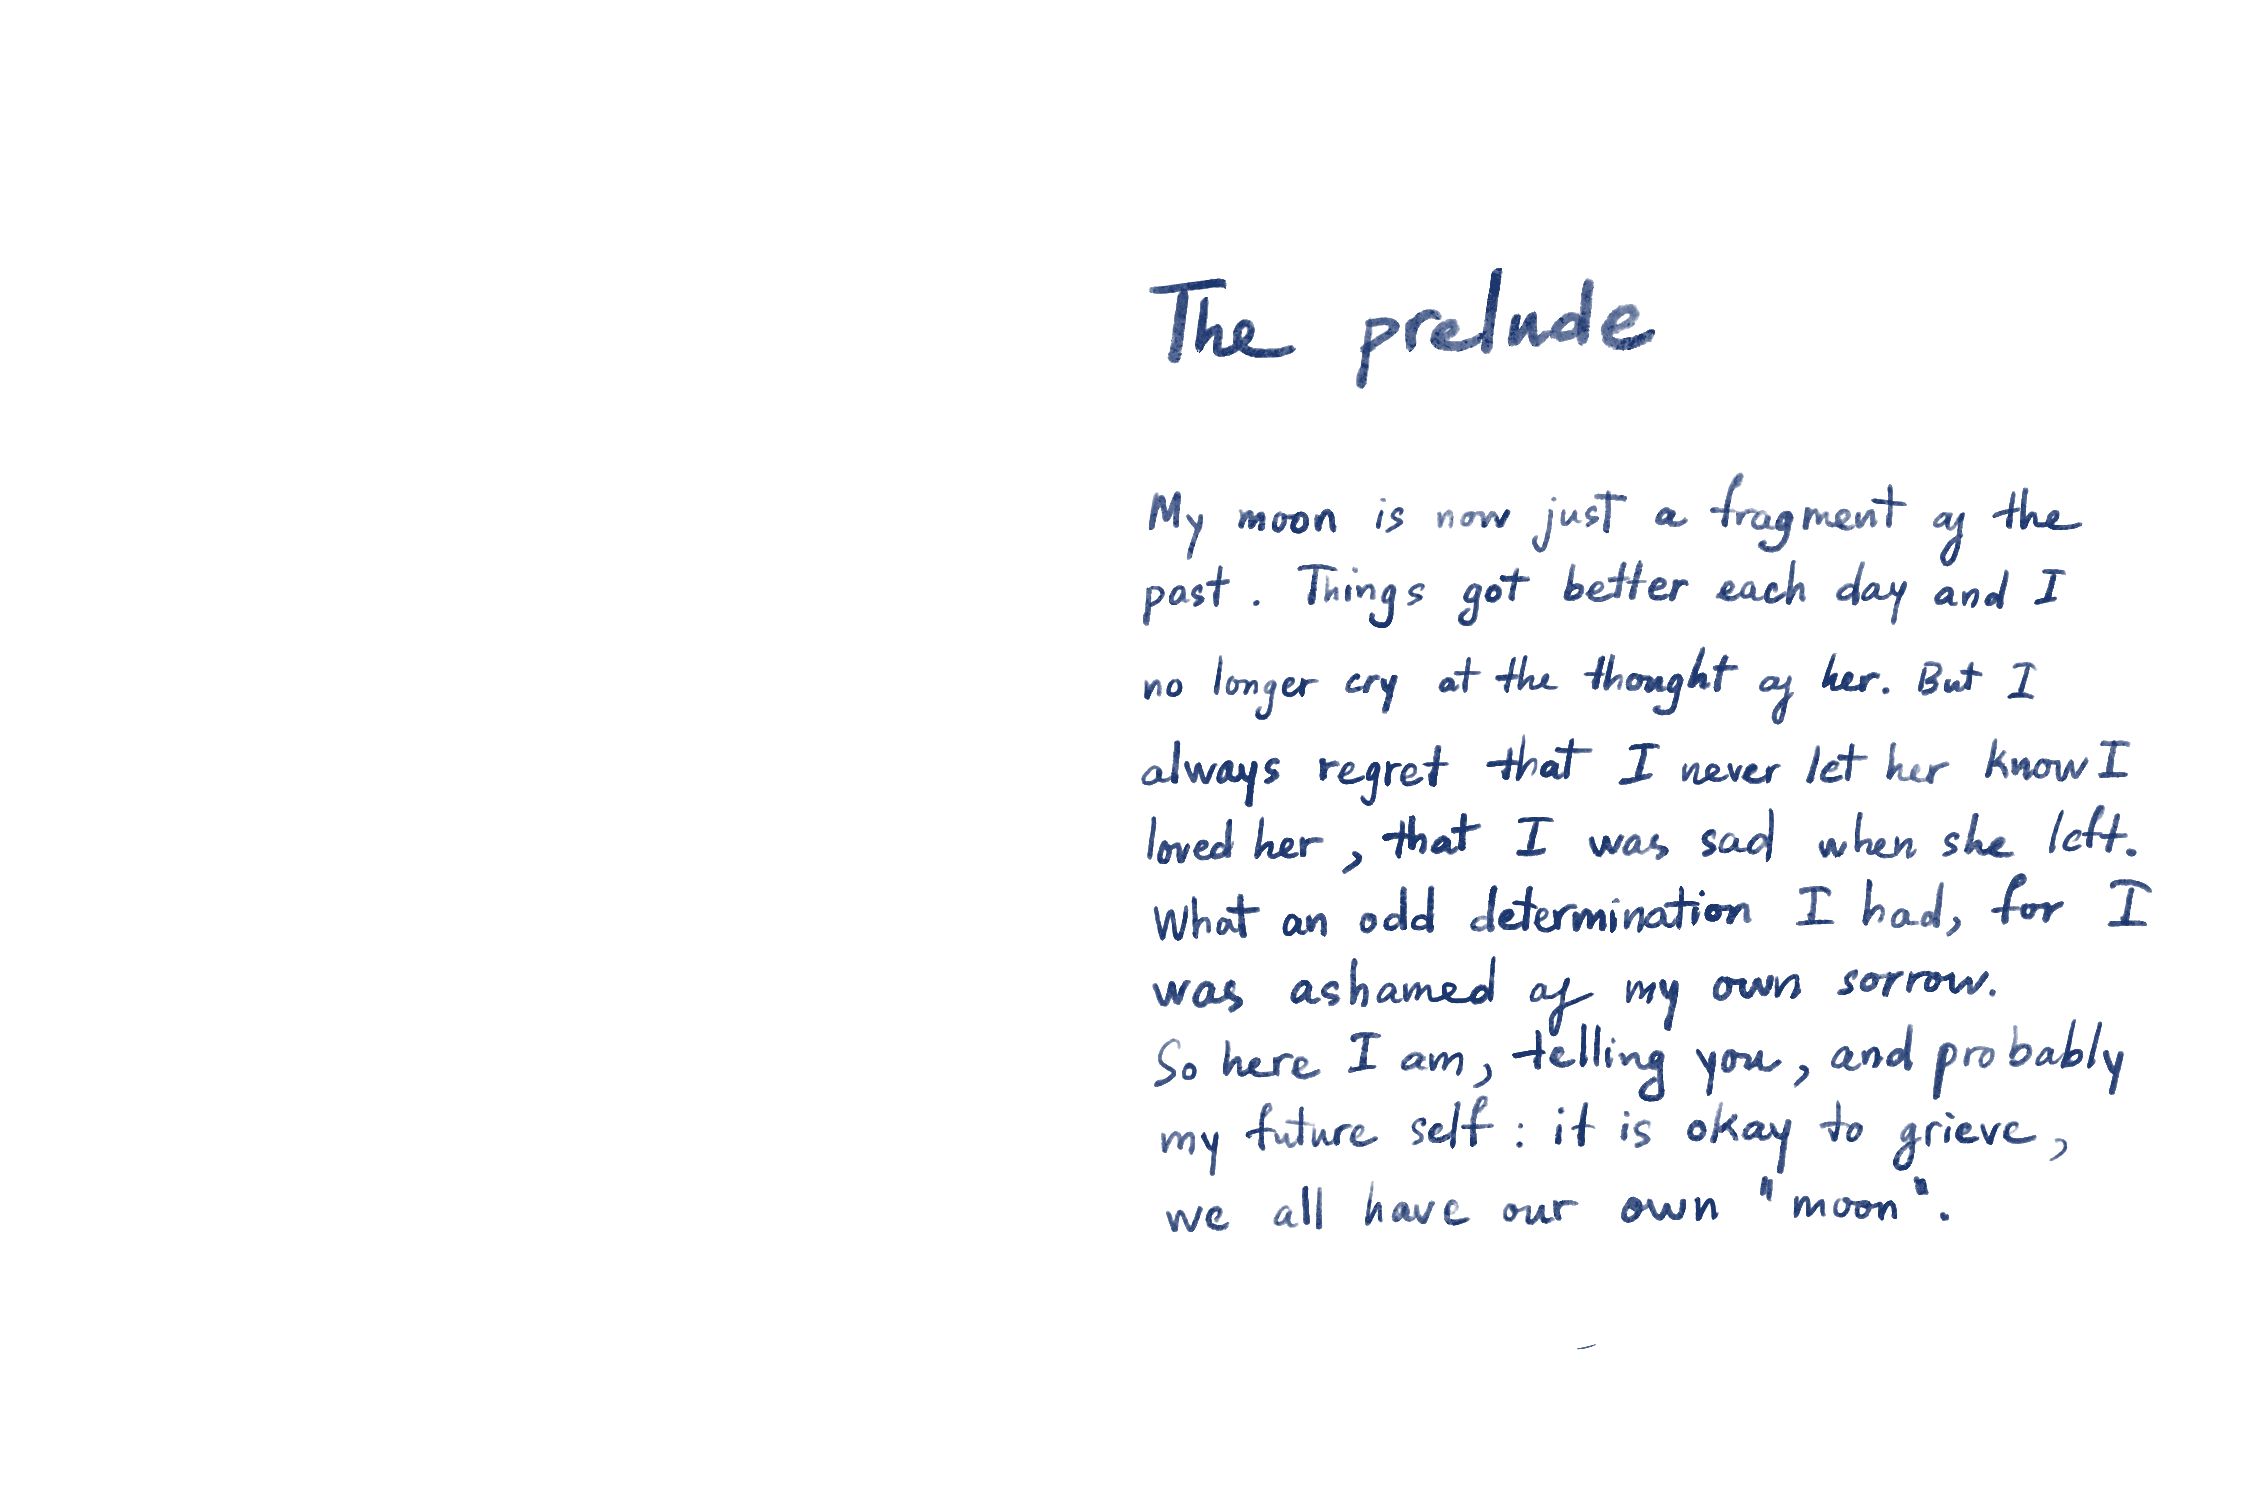 The prelude
My moon is now just a fragment of the
past. Things got better each day and I
no longer cry at the thought of her. But I
always regret that I never let her know I
loved her, that I was sad when she left.
What an odd determination I had, for I
was ashamed of my own sorrow.
So here I am, telling you, and probably
my future self: it is okay to grieve,
we all have our own "moon".